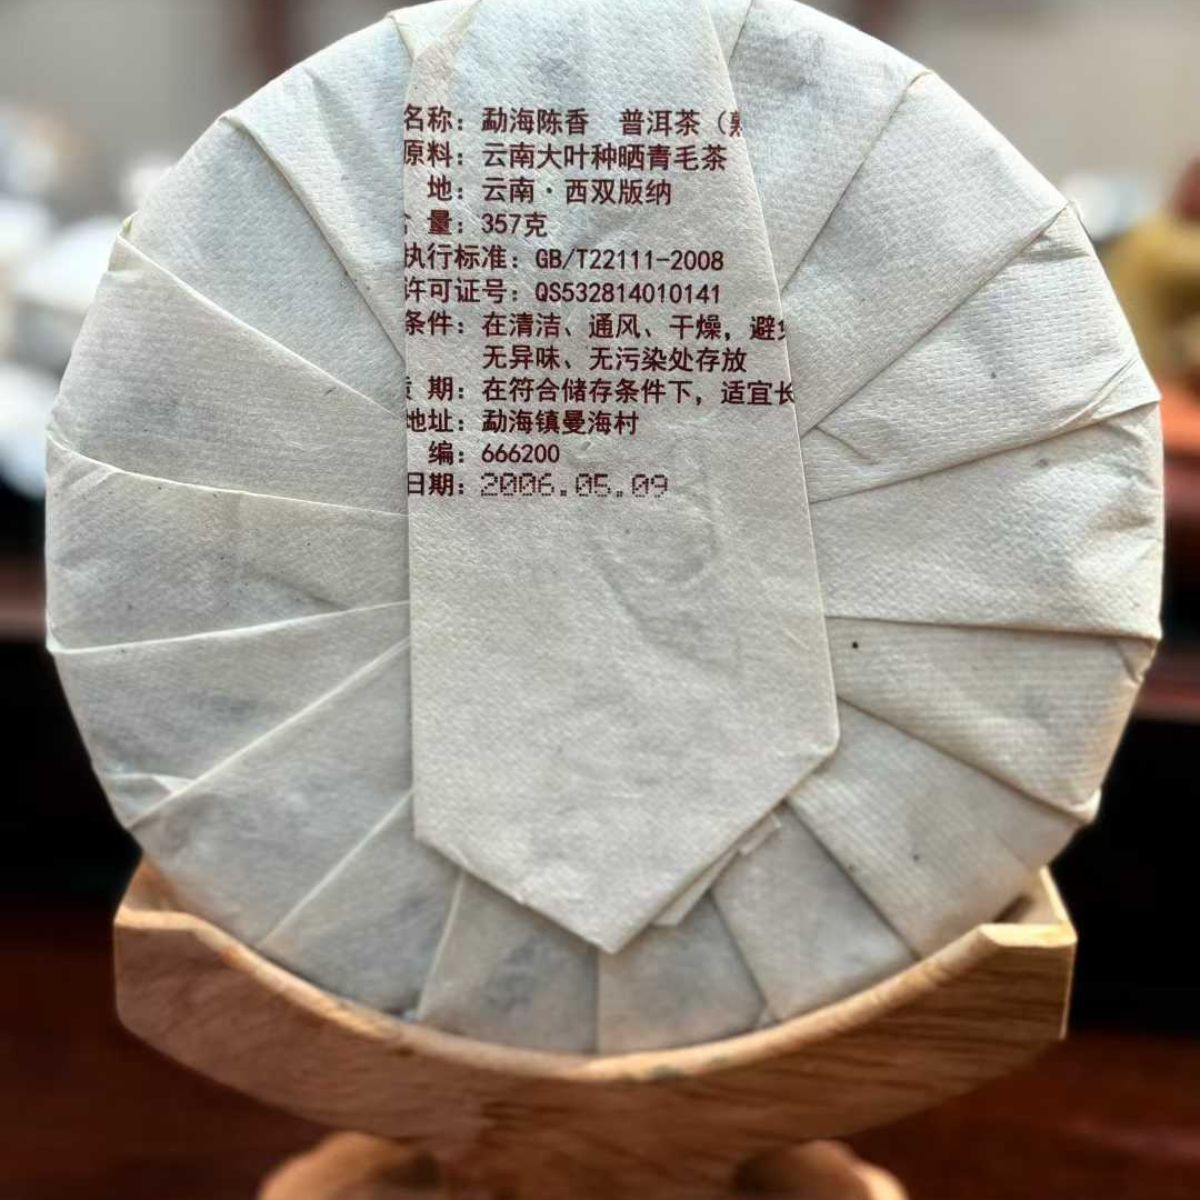 名称：勐海陈香 普洱茶（熟
原料：云南大叶种晒青毛茶
地：云南·西双版纳
量：357克
执行标准：GB/T22111-2008
许可证号：QS532814010141
条件：在清洁、通风、干燥，避免
无异味、无污染处存放
期：在符合储存条件下，适宜长
地址：勐海镇曼海村
编：666200
日期：2006.05.09